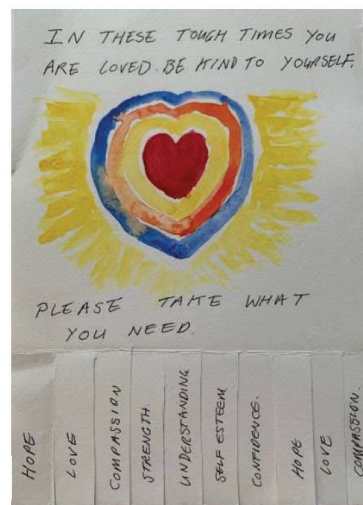 IN THESE TOUGH TIMES YOU
ARE LOVED. BE KIND TO YOURSELF.
PLEASE TAKE WHAT
YOU NEED.
HOPE
LOVE
COMPASSION
STRENGTH.
UNDERSTANDING
SELF ESTEEM
CONFIDENCE.
HOPE
LOVE
COMPASSION